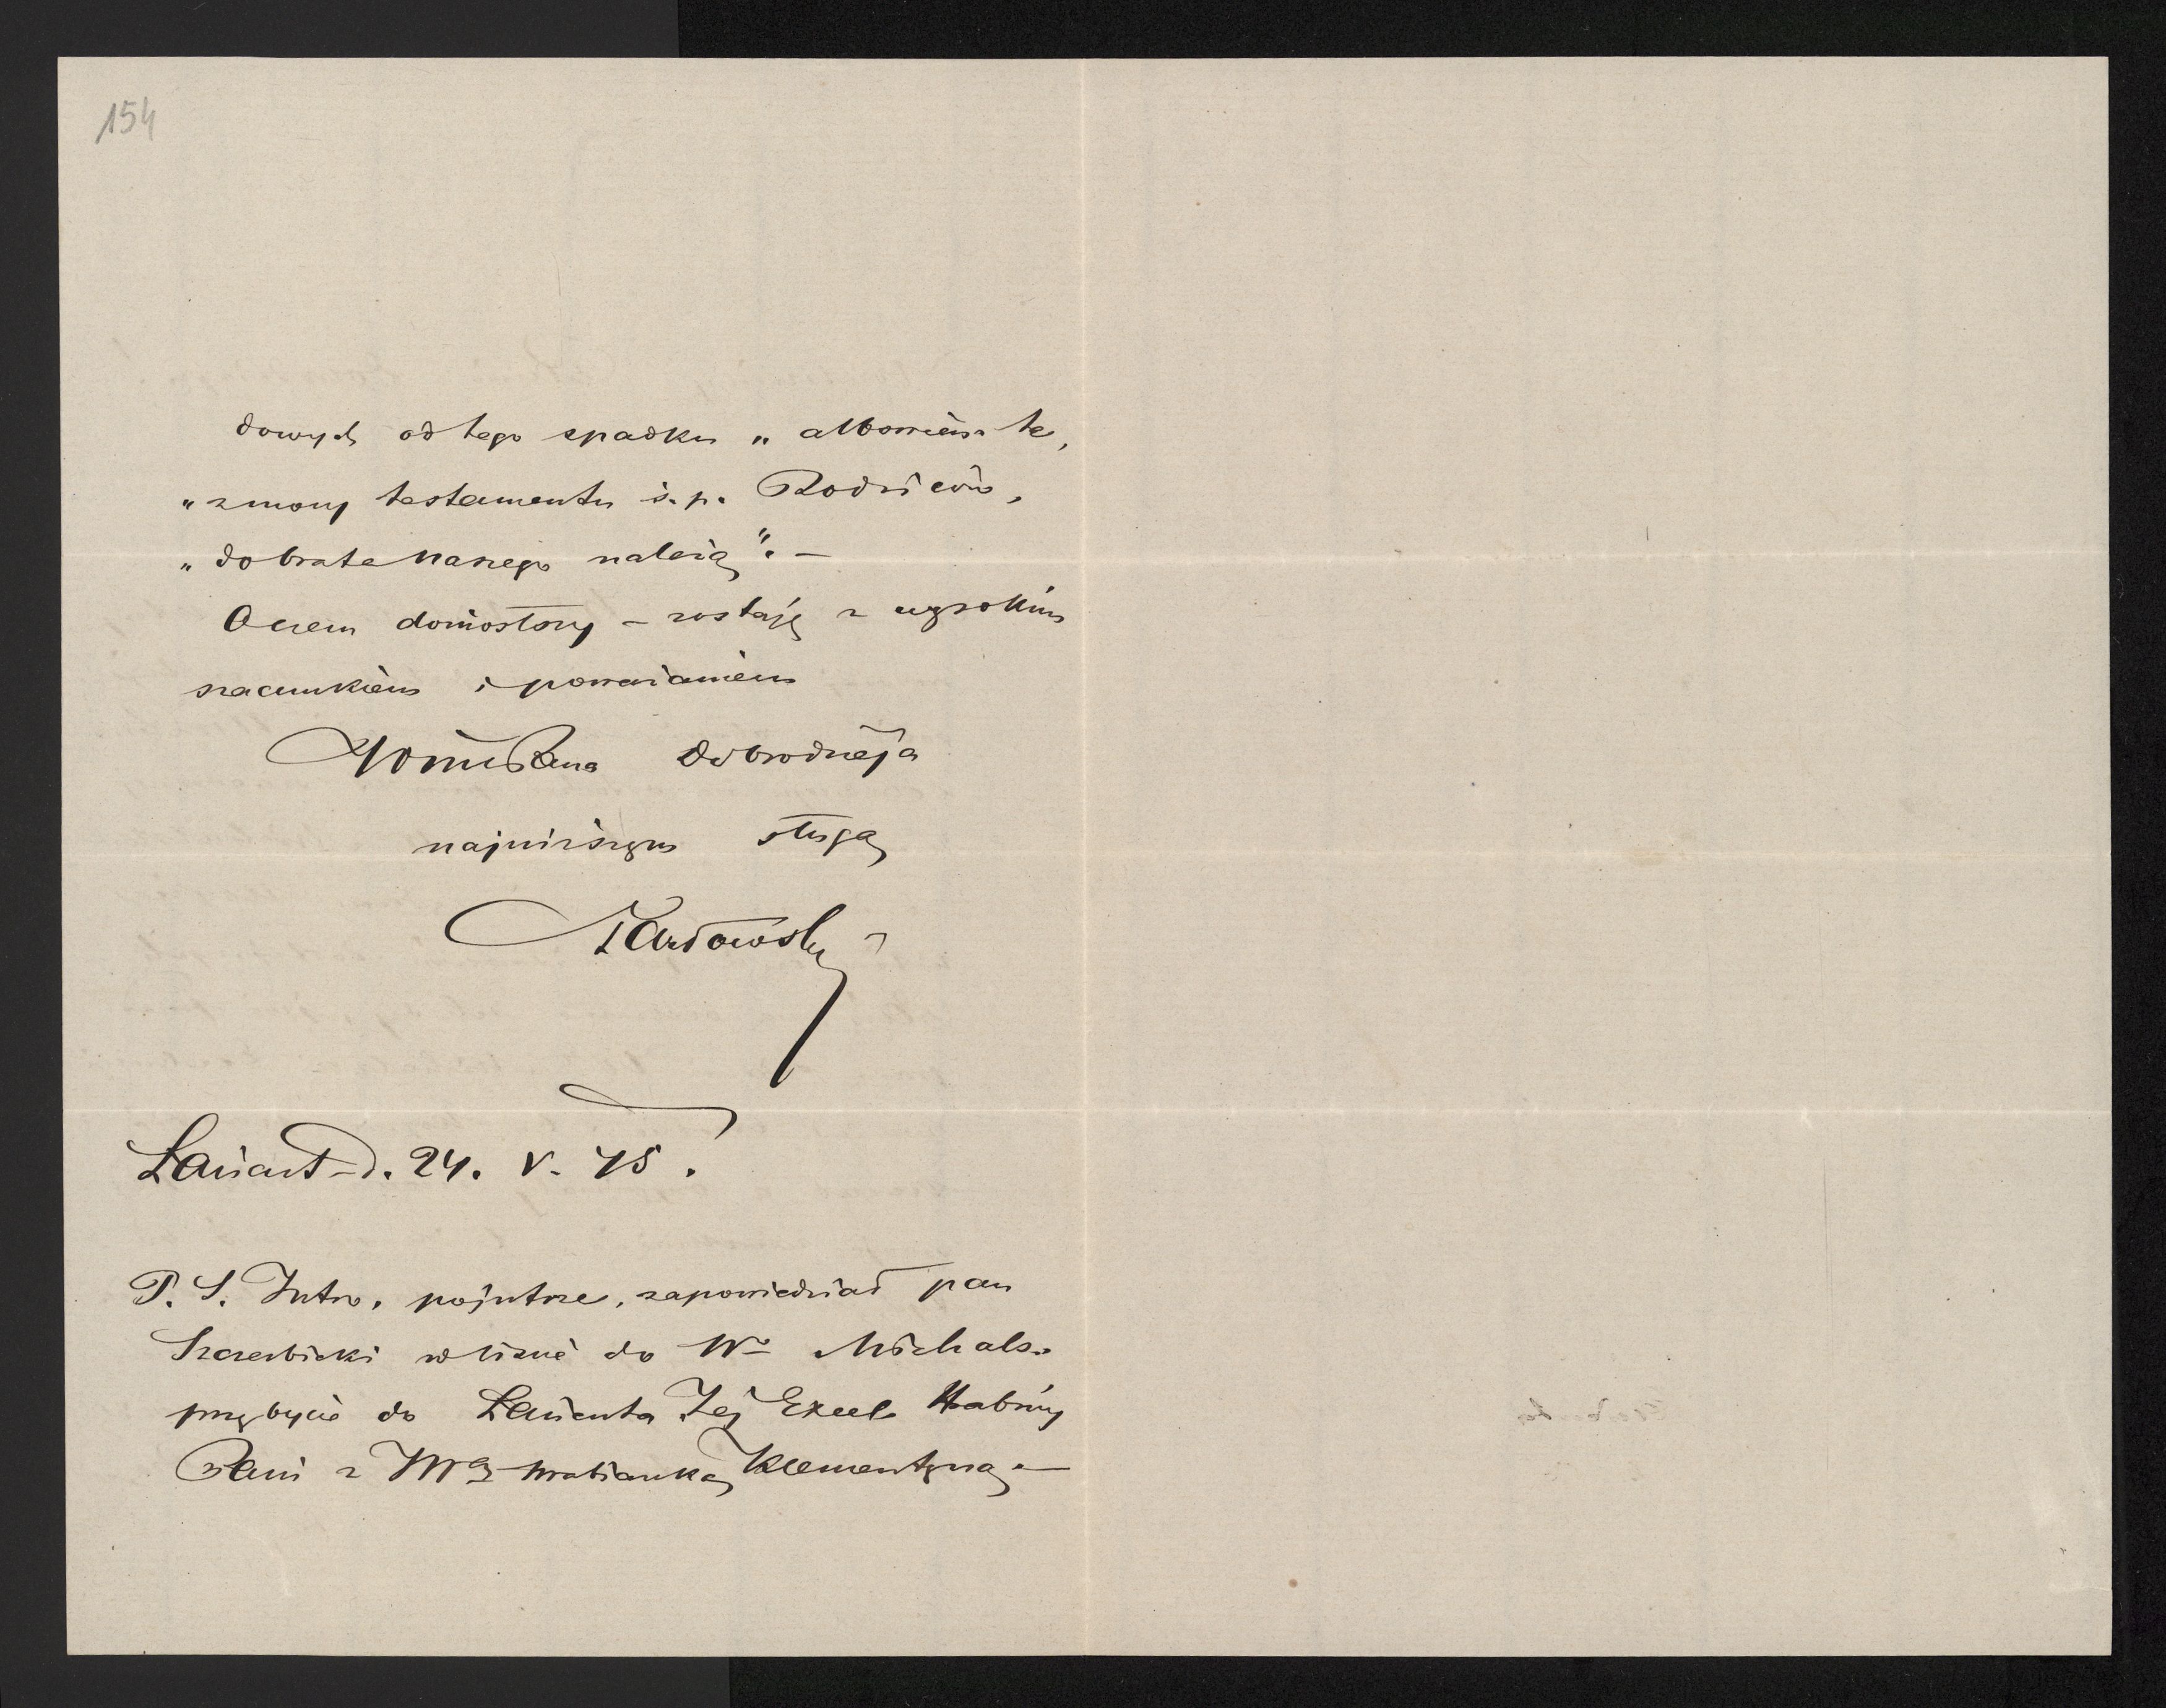 154
dowych od tego spadku „albowiem te,
„z mocy testamentu ś. p. Rodziców,
„do brata naszego należą". —
O czem doniósłszy – zostaję z wysokim
szacunkiem i poważaniem
Pana Dobrodzieja
najniższym sługą
Łańcut d. 24. V. 75.
P. S. Jutro, pojutrze, zapowiedział pan
Szczerbicki w liście do Wo Michals.
przybycie do Łańcuta Jej Excel. Hrabiny
Pani z JWą hrabianką Klementyną. —